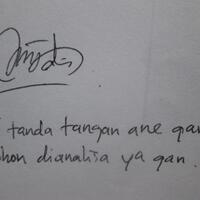 tanda tangan ane gan
dianalisa ya gan.